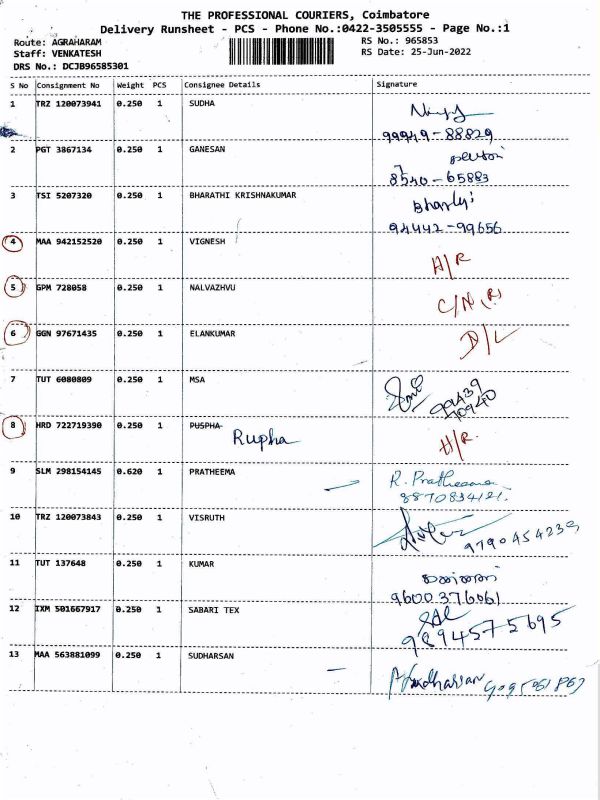 THE PROFESSIONAL COURIERS, Coimbatore
Delivery Runsheet - PCS - Phone No.:0422-3505555 - Page No.:1
Route: AGRAHARAM
Staff: VENKATESH
DRS No.: DCJB96585301
RS No.: 965853
RS Date: 25-Jun-2022
S No Consignment No Weight PCS Consignee Details Signature
1 TRZ 120073941 0.250 1 SUDHA
99949-88829
2 PGT 3867134 0.250 1 GANESAN
8540-65883
3 TSI 5207320 0.250 1 BHARATHI KRISHNAKUMAR
94442-99656
4 MAA 942152520 0.250 1 VIGNESH
A/R
5 GPM 728058 0.250 1 NALVAZHVU
C/N (R)
6 GGN 97671435 0.250 1 ELANKUMAR
D/L
7 TUT 6080809 0.250 1 MSA
99439
70940
8 HRD 722719390 0.250 1 PUSPHA
Rupha
A/R.
9 SLM 298154145 0.620 1 PRATHEEMA
R. Pratheema
8870834121.
10 TRZ 120073843 0.250 1 VISRUTH
9790454239
11 TUT 137648 0.250 1 KUMAR
9600376061
12 IXM 501667917 0.250 1 SABARI TEX
9894575695
13 MAA 563881099 0.250 1 SUDHARSAN